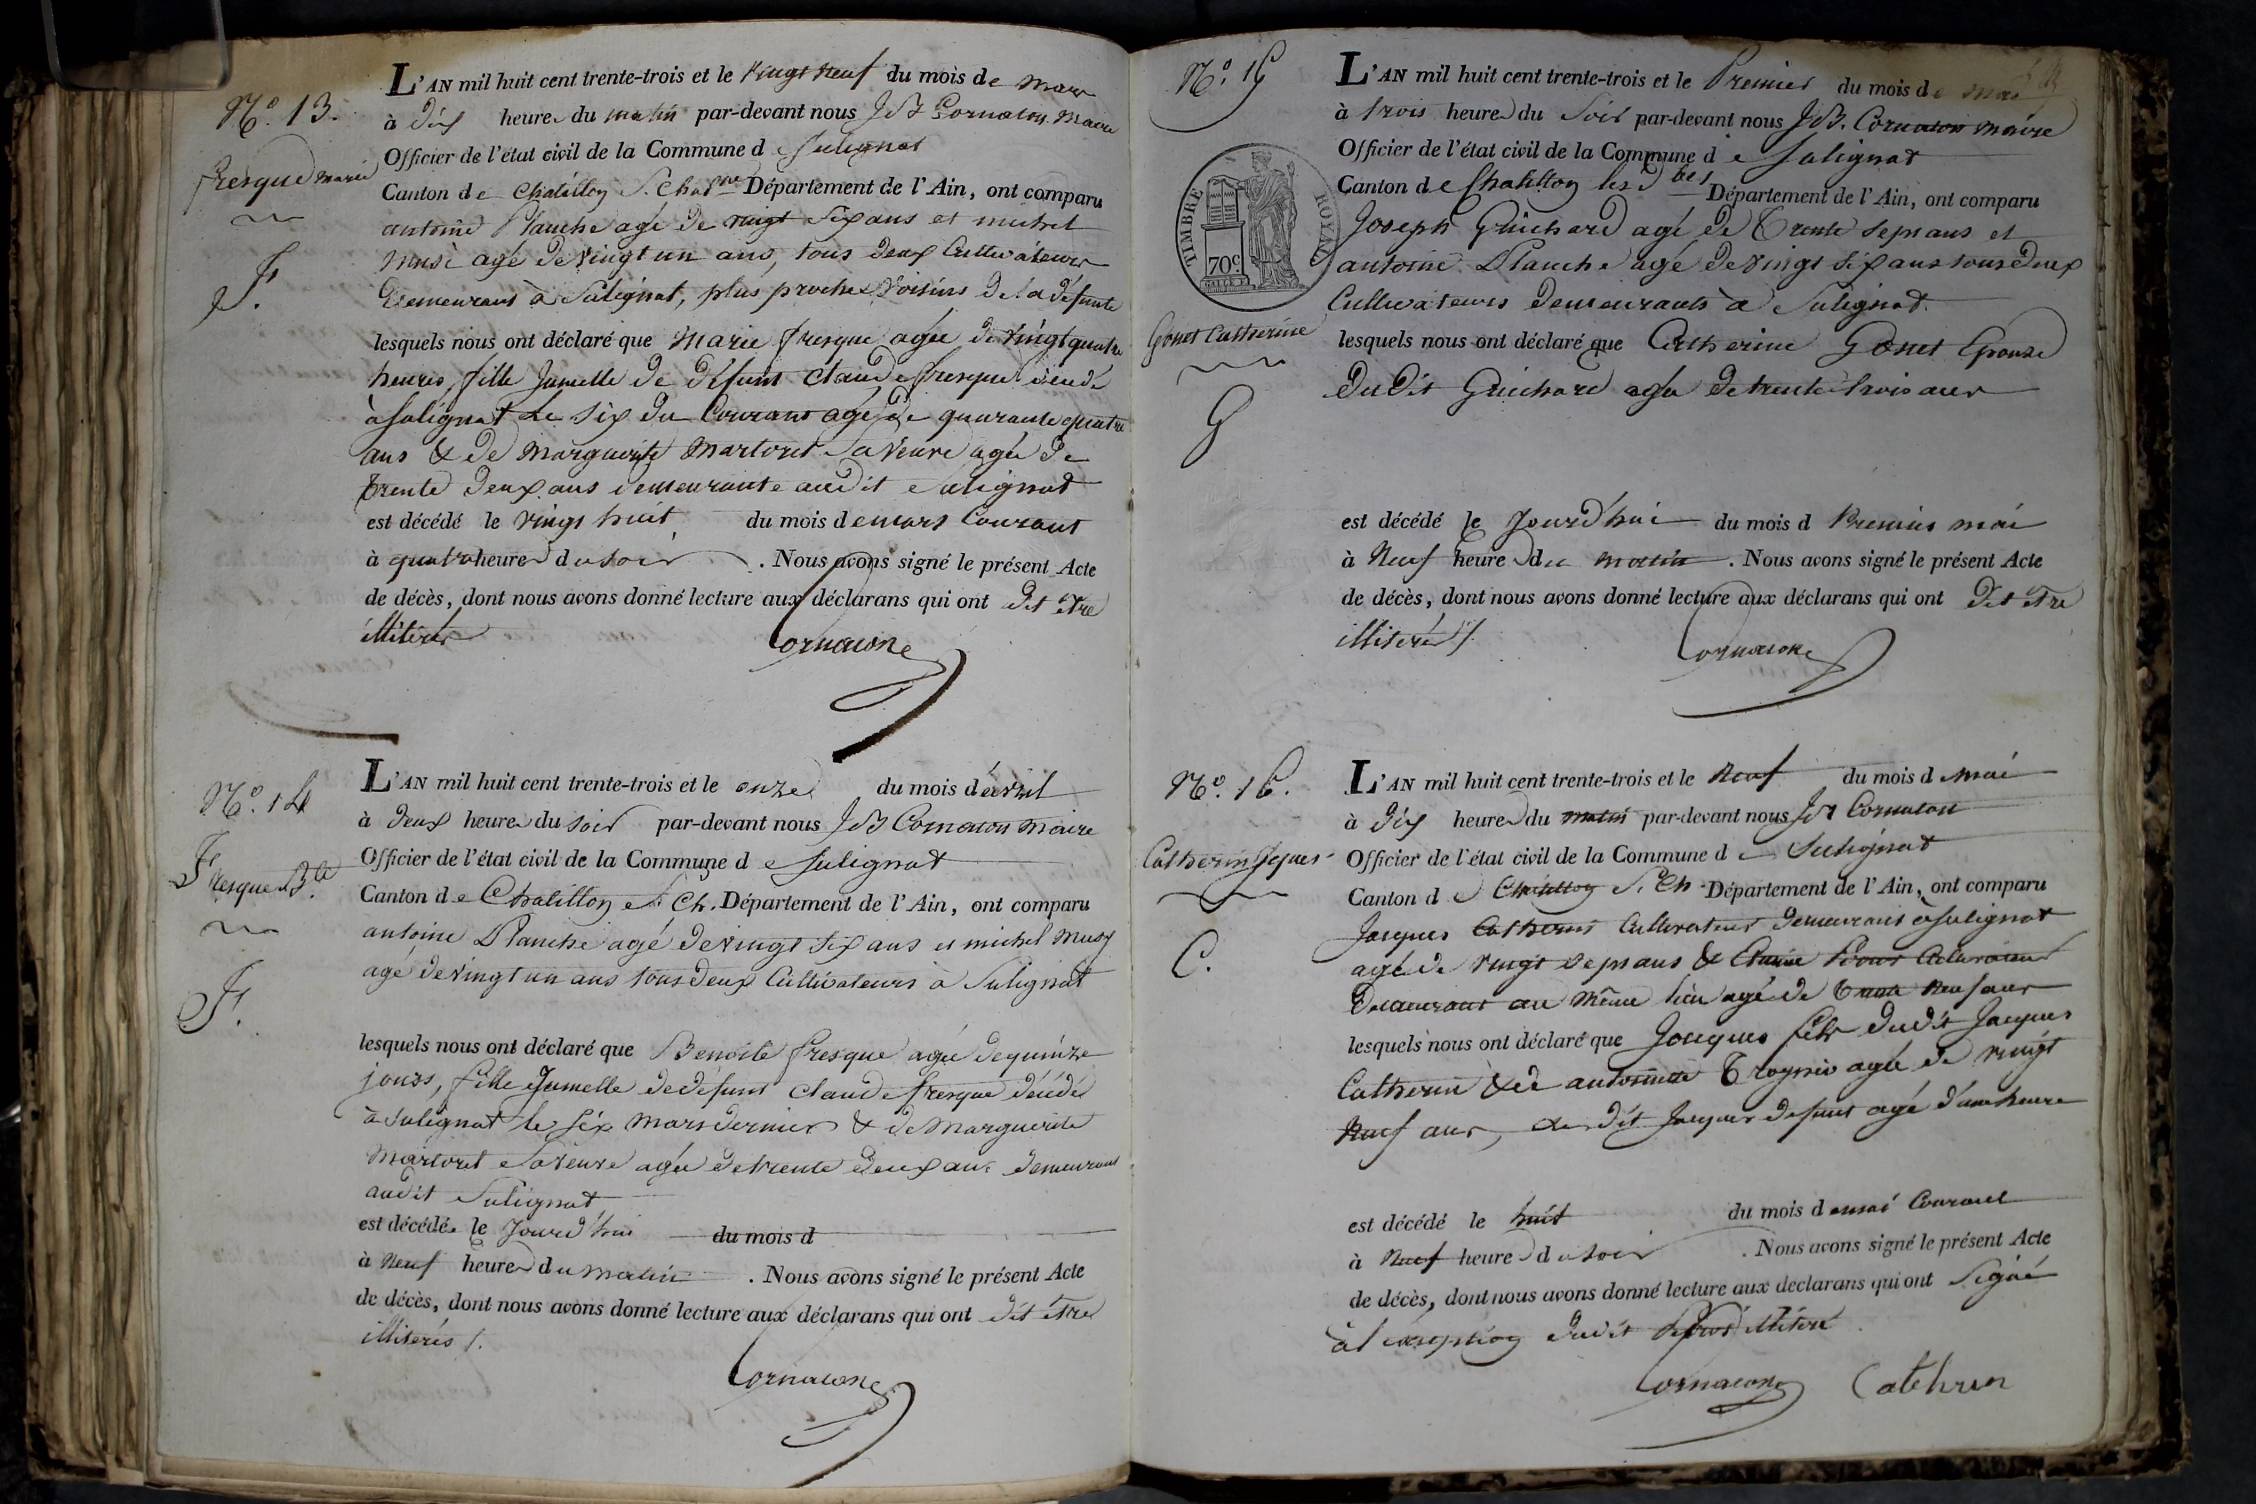 N.o 13.
fresque marie
F.
L'AN mil huit cent trente-trois et le vingt neuf du mois de mars
à dix heures du matin par-devant nous J Bt Cornaton Maire
Officier de l'état civil de la Commune de Sulignat
Canton de Chatillon S. Char.ne Département de l'Ain, ont comparu
antoine Planche agé de vingt six ans et michel
Musi agé de vingt un ans, tous deux Cultivateurs
demeurans à Sulignat, plus proches voisins de la défunte
lesquels nous ont déclaré que Marie fresque agée de vingt quatre
heures, fille Jumelle de défunt Claude fresque décédé
à Sulignat le six du Courant agé de quarante quatre
ans & de Marguerite Martoret sa veuve agée de
trente deux ans demeurante audit Sulignat
est décédé le vingt huit du mois de mars Courant
à quatre heures du soir . Nous avons signé le présent Acte
de décès, dont nous avons donné lecture aux déclarans qui ont dit être
illiterés
Cornaton
N.o 14
Fresque B.te
F.
L'AN mil huit cent trente-trois et le onze du mois d'avril
à deux heures du soir par-devant nous J Bt Cornaton Maire
Officier de l'état civil de la Commune de Sulignat
Canton de Chatillon S. Ch. Département de l'Ain, ont comparu
antoine Planche agé de vingt six ans et michel Musy
agé de vingt un ans tous deux Cultivateurs à Sulignat
lesquels nous ont déclaré que Benoite fresque agée de quinze
jours, fille Jumelle de défunt Claude fresque décédé
à Sulignat le six Mars dernier & de Marguerite
Martoret sa veuve agée de trente deux ans demeurant
audit Sulignat
est décédée le Jourd'hui du mois d
à Neuf heures du matin . Nous avons signé le présent Acte
de décès, dont nous avons donné lecture aux déclarans qui ont dit être
illiterés /.
Cornaton
N.o 15
TIMBRE ROYAL
70c
Gonet Catherine
G
L'AN mil huit cent trente-trois et le Premier du mois de mai
à trois heures du Soir par-devant nous J B. Cornaton Maire
Officier de l'état civil de la Commune de Sulignat
Canton de Chatillon les Dbes Département de l'Ain, ont comparu
Joseph Guichard agé de Trente sept ans et
antoine Planche agé de vingt six ans tous deux
Cultivateurs demeurants à Sulignat.
lesquels nous ont déclaré que Catherine Gonet Epouse
dudit Guichard agée de trente trois ans
est décédé le Jourd'hui du mois d Premier mai
à Neuf heures du matin . Nous avons signé le présent Acte
de décès, dont nous avons donné lecture aux déclarans qui ont dit être
illiterés /.
Cornaton
N.o 16.
Catherin Jques
C.
L'AN mil huit cent trente-trois et le Neuf du mois d mai
à dix heures du matin par-devant nous J Bt Cornaton
Officier de l'état civil de la Commune de Sulignat
Canton de Chatillon S. Ch Département de l'Ain, ont comparu
Jacques Catherin Cultivateur demeurant à Sulignat
agé de vingt sept ans & Cultivateur
demeurant au même lieu agé de Trente Neuf ans
lesquels nous ont déclaré que Jacques fils dudit Jacques
Catherin & de antoinette agée de vingt
Neuf ans, le dit Jacques defunt agé d'une heure
est décédé le huit du mois de mai Courant
à Neuf heures du soir . Nous avons signé le présent Acte
de décès, dont nous avons donné lecture aux déclarans qui ont Signé
à l'exception dudit illiteré
Cornaton Catherin